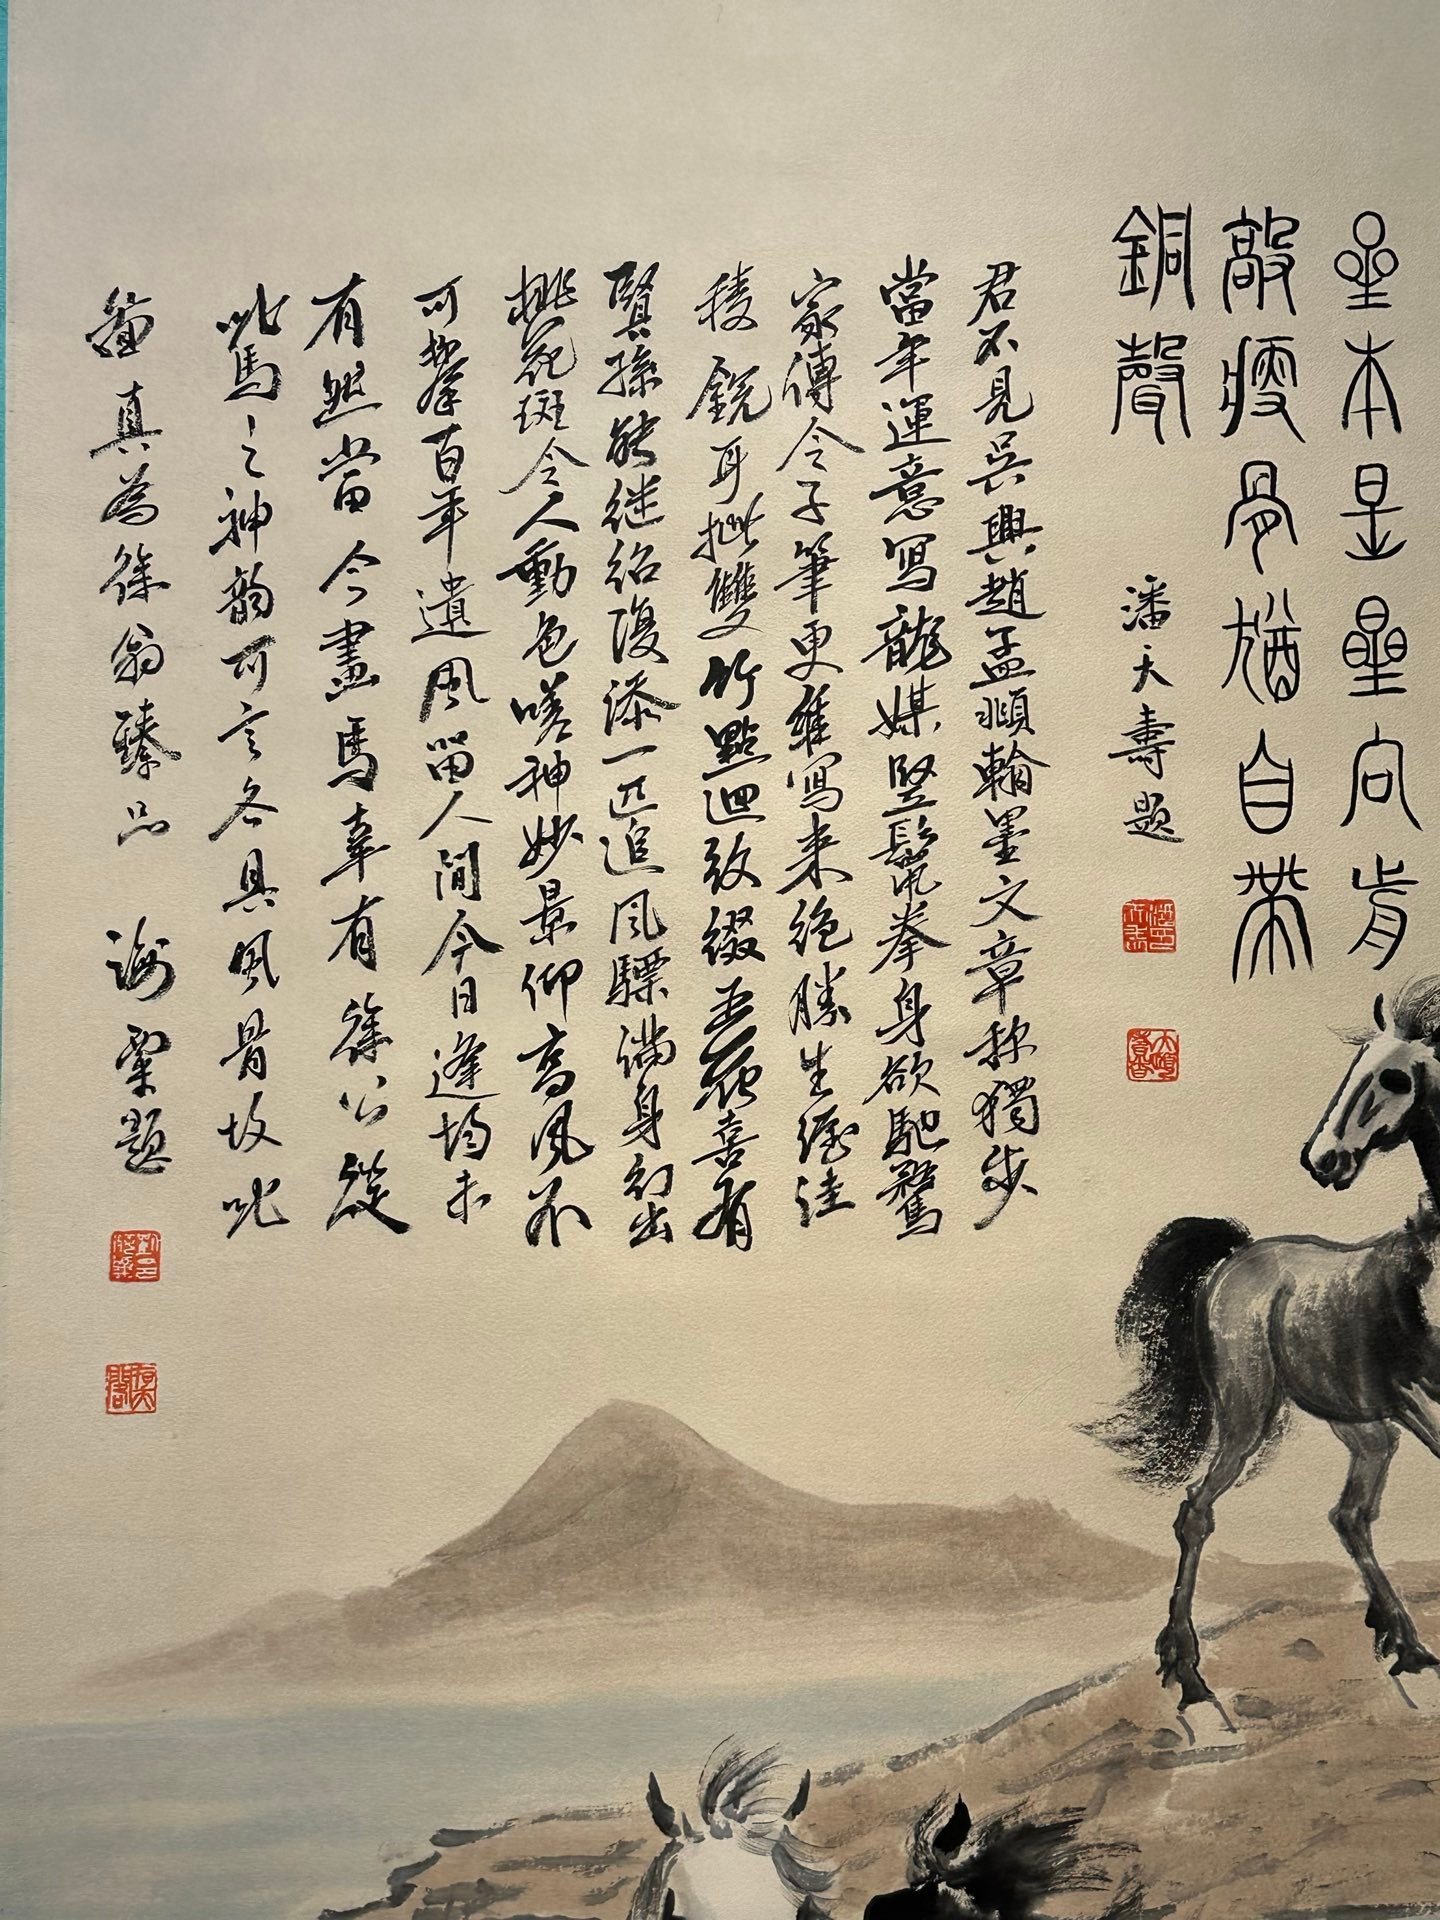 星本是星向前
敲瘦骨猶自帶
銅聲
潘天壽題
君不見吳興趙孟頫翰墨文章称獨步
當年運意寫龍媒竪鬣拳身欲馳騖
家傳令子筆更雄寫来絶勝生渥洼
稜鋭耳批雙竹點迴致綴五花喜有
賢孫能继绍復添一匹追風驃满身幻出
桃花斑令人動色嗟神妙景仰高風不
可攀百年遺風留人間今日逢均未
有然當今畫馬幸有徐公從
此馬之神韵可言各具風骨故此
真為徐翁臻品 海粟題